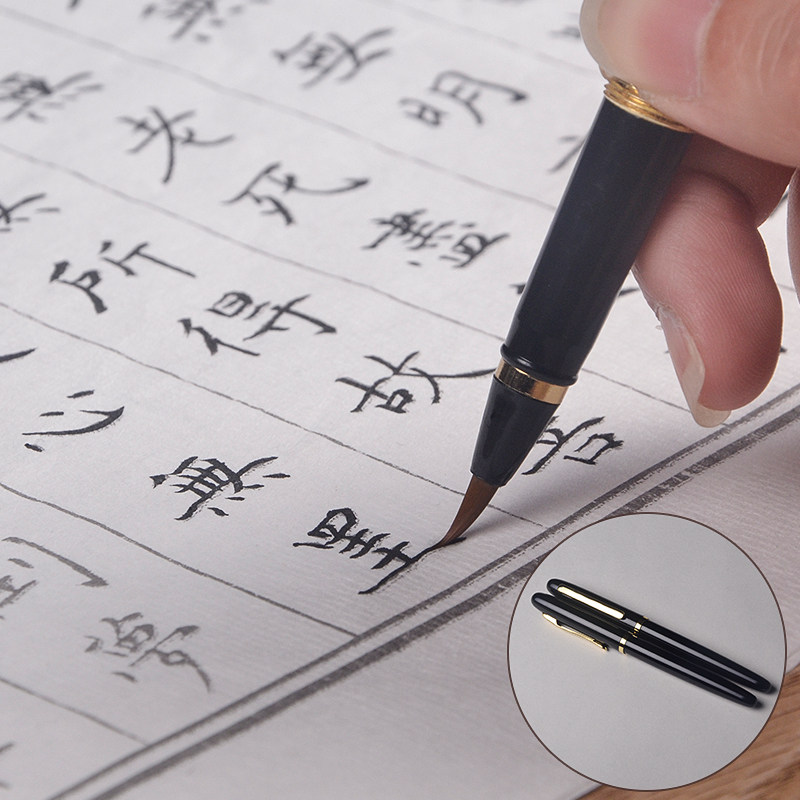 無明
無老死盡
所得故菩
心無罣
倒夢